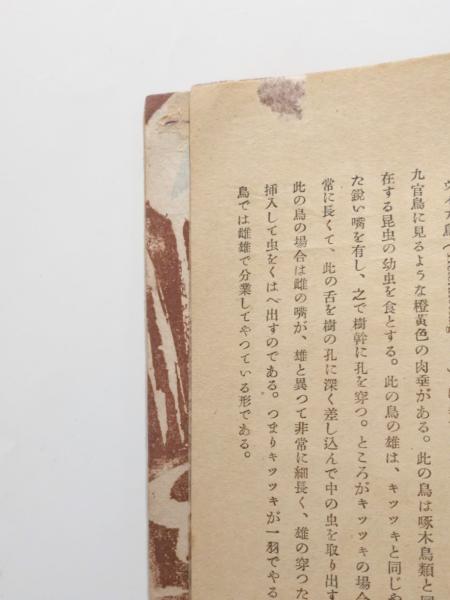 九官鳥に見るような橙黄色の肉垂がある。此の鳥は啄木鳥類と同
在する昆虫の幼虫を食とする。此の鳥の雄は、キツツキと同じや
た鋭い嘴を有し、之で樹幹に孔を穿つ。ところがキツツキの場合
常に長くて、此の舌を樹の孔に深く差し込んで中の虫を取り出す
此の鳥の場合は雌の嘴が、雄と異つて非常に細長く、雄の穿つた
挿入して虫をくはへ出すのである。つまりキツツキが一羽でやる
鳥では雌雄で分業してやつている形である。